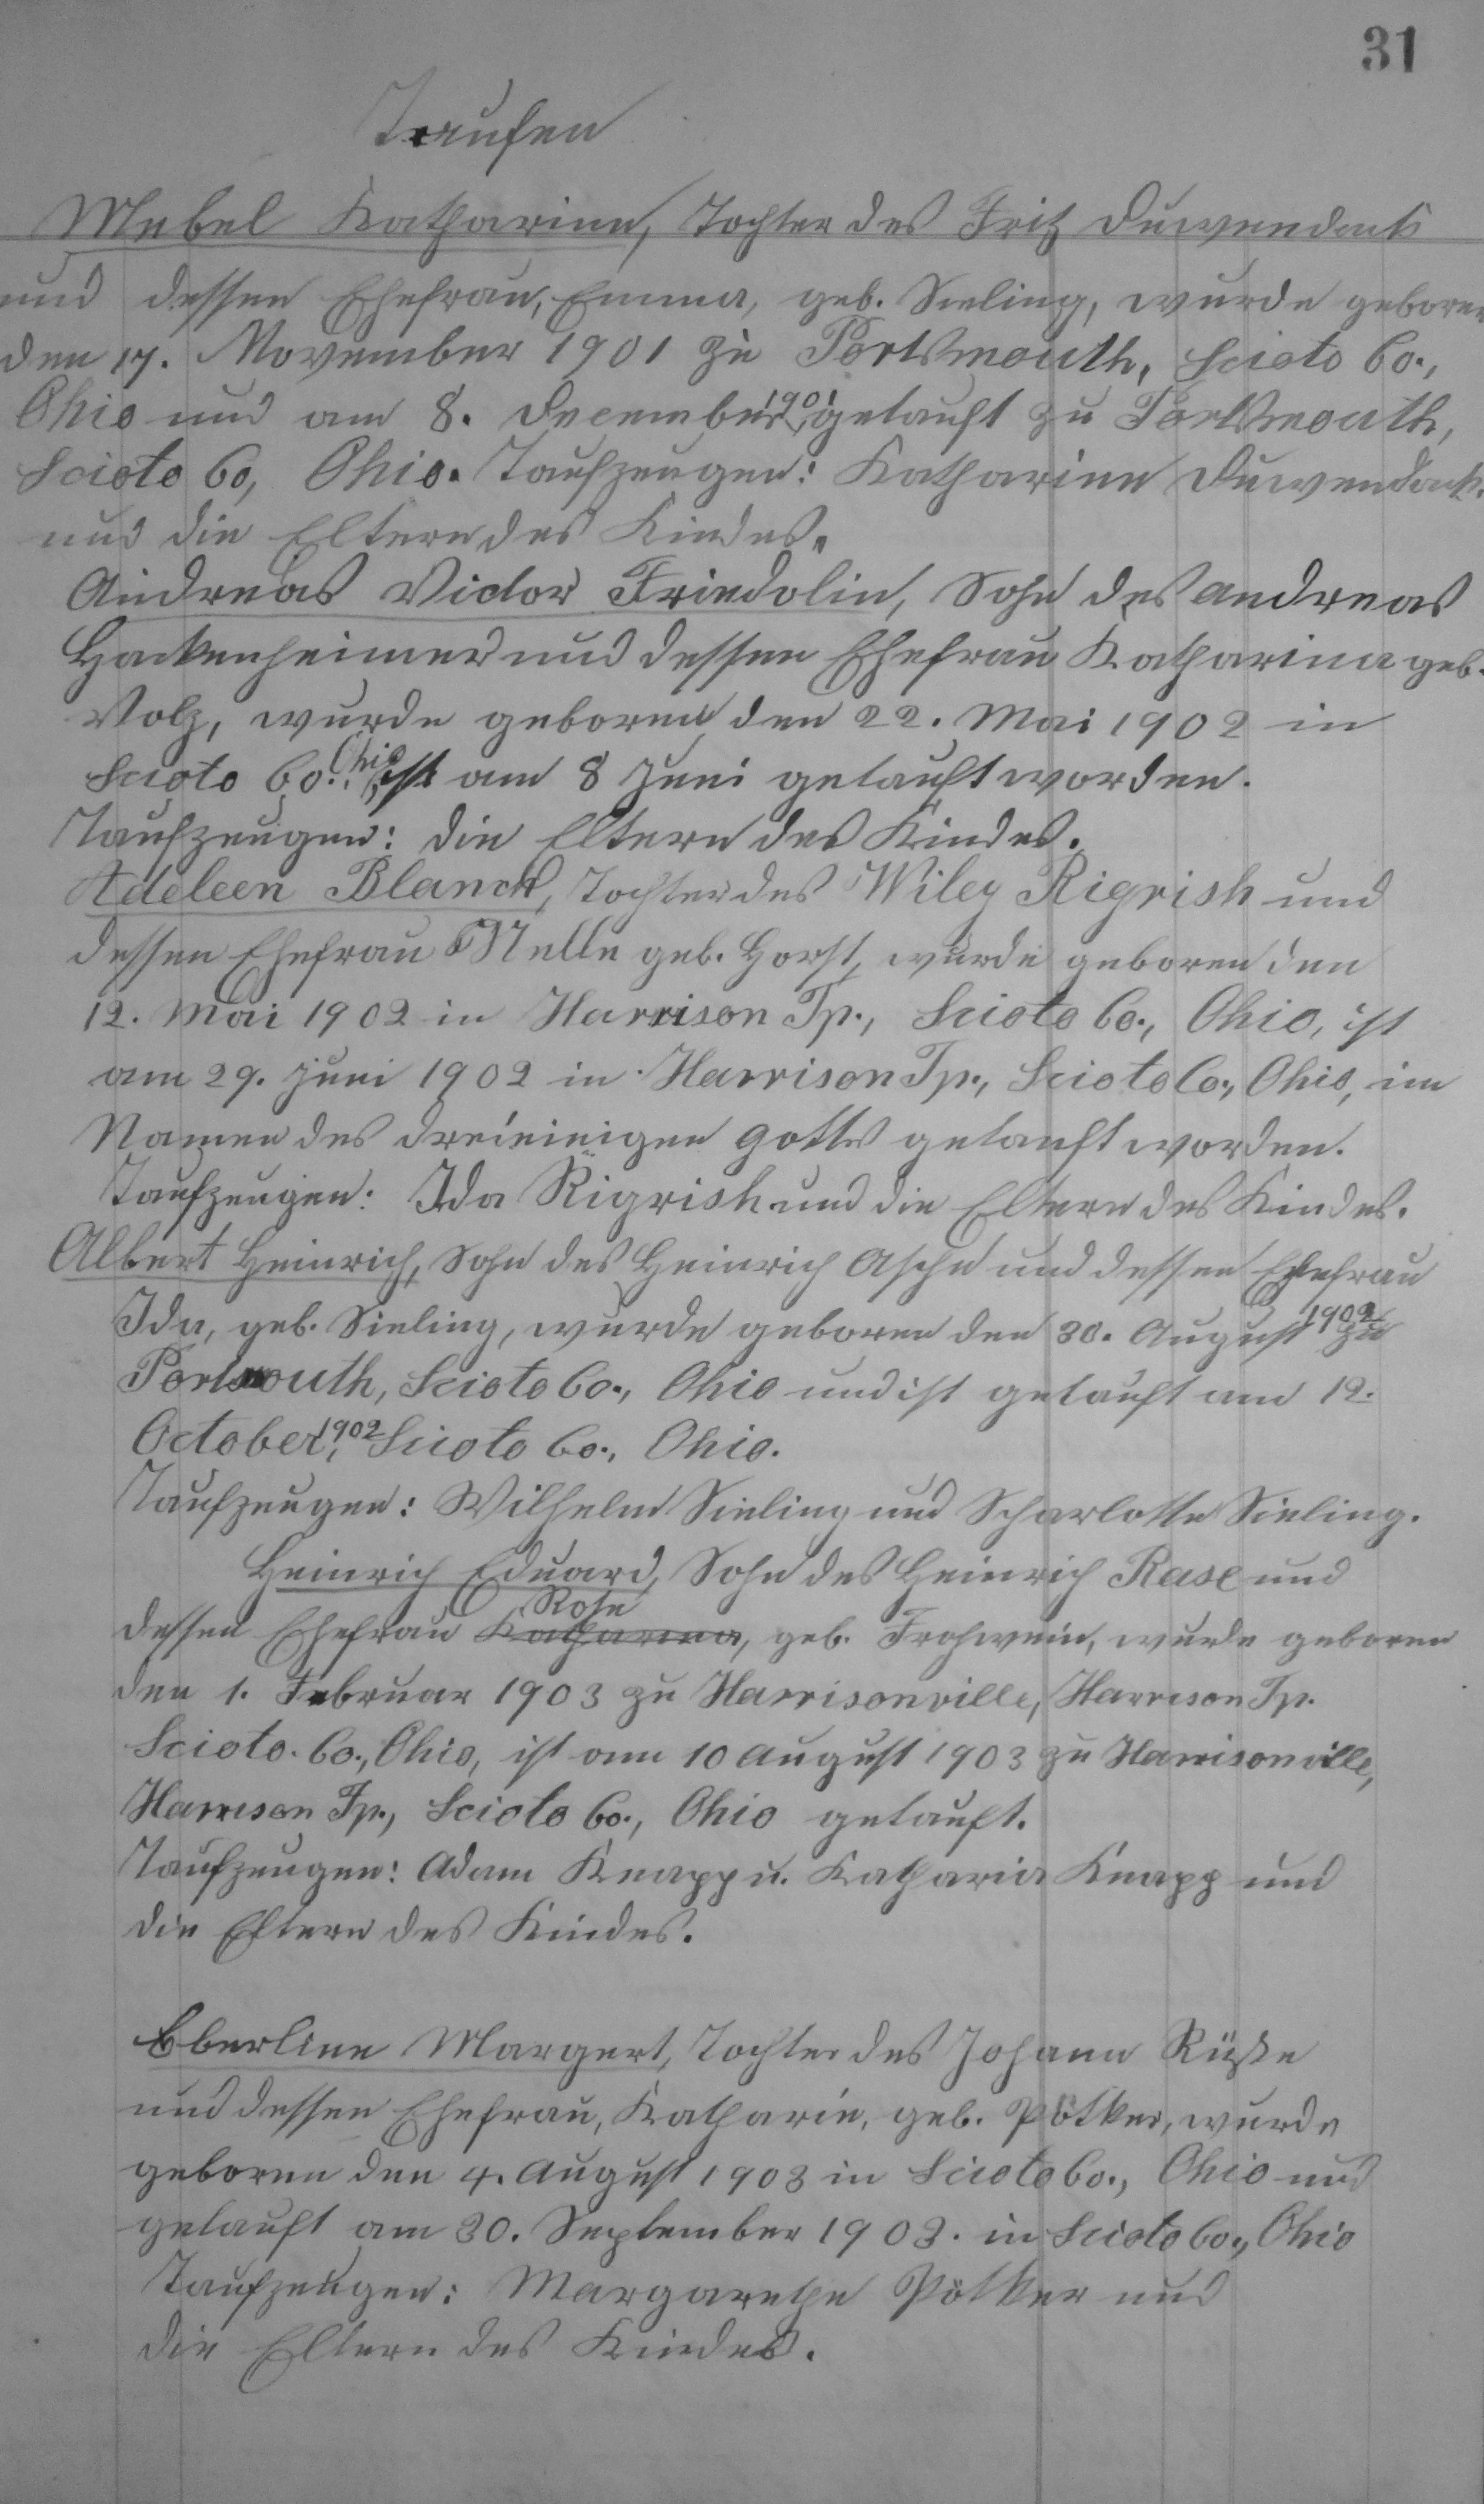 31
Taufen
Mebel Katharine, Tochter des Fritz Duwendack
und dessen Ehefrau, Emma, geb. Sieling, wurde geboren
den 17. November 1901 zu Portsmouth, Scioto Co.,
Ohio und am 8. December 1901 getauft zu Portsmouth,
Scioto Co, Ohio. Taufzeugen: Katharine Duwendack.
und die Eltern des Kindes.
Andreas Victor Friedolin, Sohn des Andreas
Hackenheimer und dessen Ehefrau Katharina geb.
Volz, wurde geboren den 22. Mai 1902 in
Scioto Co., Ohio, ist am 8 Juni getauft worden.
Taufzeugen: die Eltern des Kindes.
Adeleen Blanch, Tochter des Wiley Rigrish und
dessen Ehefrau Nelle geb. Horst, wurde geboren den
12. Mai 1902 in Harrison Tp., Scioto Co., Ohio, ist
am 29. Juni 1902 in Harrison Tp., Scioto Co., Ohio, im
Namen des dreieinigen Gottes getauft worden.
Taufzeugen: Ida Rigrish und die Eltern des Kindes.
Albert Heinrich, Sohn des Heinrich Asche und dessen Ehefrau
Ida, geb. Sieling, wurde geboren den 30. August 1902 zu
Portsmouth, Scioto Co., Ohio und ist getauft am 12.
October, 1902 Scioto Co., Ohio.
Taufzeugen: Wilhelm Sieling und Scharlotte Sieling.
Heinrich Eduard, Sohn des Heinrich Rase und
dessen Ehefrau Katharina Rose, geb. Frohwein, wurde geboren
den 1. Februar 1903 zu Harrisonville, Harrison Tp.
Scioto. Co., Ohio, ist am 10 August 1903 zu Harrisonville,
Harrison Tp., Scioto Co., Ohio getauft.
Taufzeugen: Adam Knapp u. Katharia Knapp und
die Eltern des Kindes.
Eberline Margert, Tochter des Johann Rüße
und dessen Ehefrau, Katharin, geb. Pötker, wurde
geboren den 4. August 1903 in Scioto Co., Ohio und
getauft am 30. September 1903. in Scioto Co., Ohio
Taufzeugen: Margarethe Pötker und
die Eltern des Kindes.